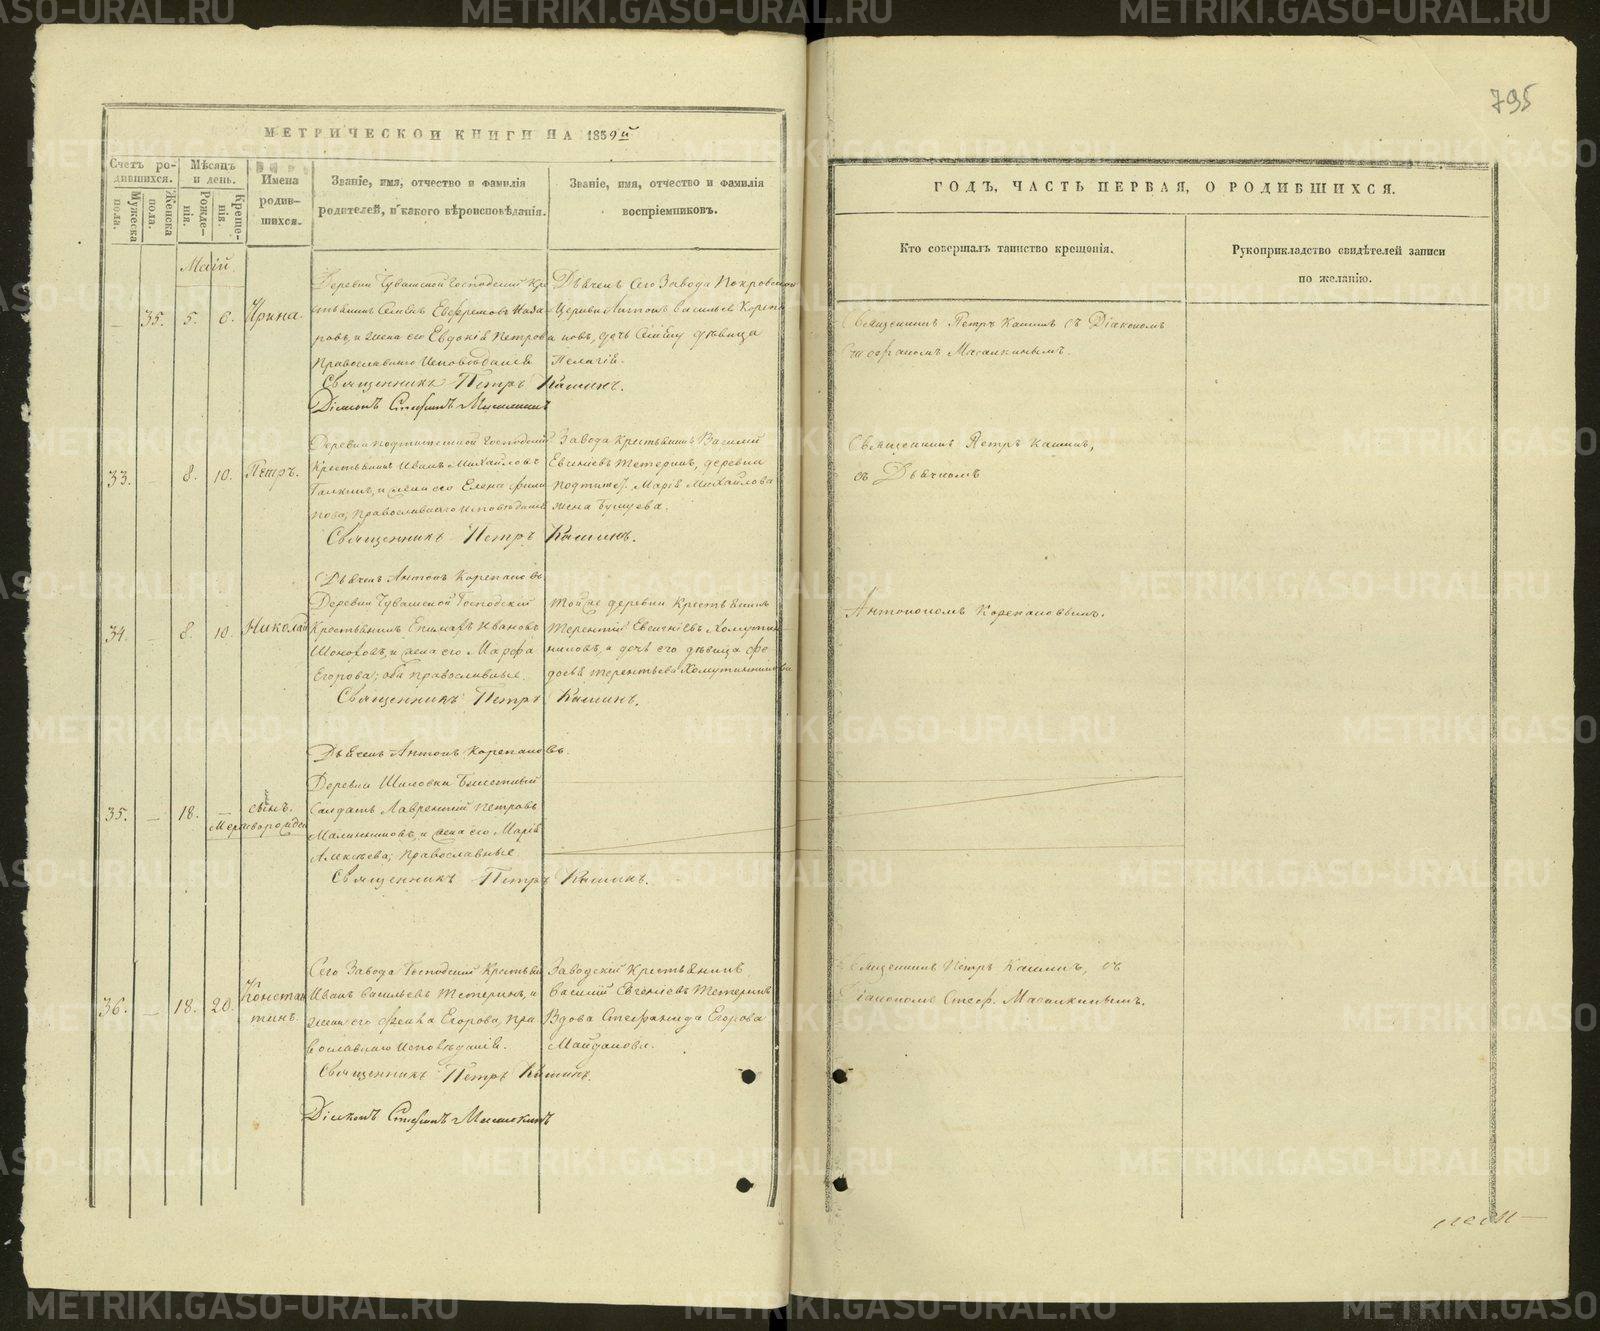 795
МЕТРИЧЕСКОЙ КНИГИ НА 1859й
Счетъ родившихся.
Мѣсяцъ и день.
Имена родившихся.
Званіе, имя, отчество и фамилія
родителей, и какого вѣроисповѣданія.
Званіе, имя, отчество и фамилія
воспріемниковъ.
Мужеска пола.
Женска пола.
Рожденія.
Крещенія.
ГОДЪ, ЧАСТЬ ПЕРВАЯ, О РОДИВШИХСЯ.
Кто совершалъ таинство крещенія.
Рукоприкладство свидѣтелей записи
по желанію.
Маій
35. 5. 6. Ирина.
Деревни Чувашской Господскій Кре
стьянинъ Ефремовъ Наза
ровъ, и жена его Евдокія Петрова
Православнаго Исповѣданія
Дьячекъ Сего Завода Покровской
Церкви Антонъ Васильевъ Корепа
новъ, дочь дѣвица
Пелагія.
Священникъ Петръ Кашинъ.
Діаконъ Стефанъ Масалкинъ
Священникъ Петръ Кашинъ съ Діакономъ
Стефаномъ Масалкинымъ.
33. 8. 10. Петръ.
Деревни Господскій
Крестьянинъ Иванъ Михайловъ
Галкинъ, и жена его Елена Фили
пова, Православнаго Исповѣданія
Завода Крестьянинъ Василій
Евгеніевъ Тетеринъ, деревни
Марія Михайлова
жена
Священникъ Петръ Кашинъ.
Дьячекъ Антонъ Корепановъ
Священникъ Петръ Кашинъ,
съ Дьячкомъ
Антономъ Корепановымъ.
34. 8. 10. Николай
Деревни Чувашской Господскій
Крестьянинъ Епимахъ Ивановъ
и жена его Марфа
Егорова, оба православные.
Той же деревни Крестьянинъ
Терентій Евсигніевъ Хомутин
никовъ, и дочь его дѣвица Фе
досья Терентьева Хомутинникова
Священникъ Петръ Кашинъ.
Дьячекъ Антонъ Корепановъ.
35. 18. сынъ.
Мертворожден
Деревни Шиловки
Солдатъ Лаврентій Петровъ
и жена его Марія
Алексѣева; православные.
Священникъ Петръ Кашинъ.
36. 18. 20. Констан
тинъ.
Сего Завода Господскій Крестьян
Иванъ Васильевъ Тетеринъ, и
жена его Фекла Егорова, Пра
вославнаго Исповѣданія.
Заводскій Крестьянинъ
Василій Евгеніевъ Тетеринъ
Вдова Стефанида Егорова
Майданова.
Священникъ Петръ Кашинъ.
Діаконъ Стефанъ Масалкинъ
Священникъ Петръ Кашинъ, съ
Діакономъ Стеф. Масалкинымъ.
METRIKI.GASO-URAL.RU